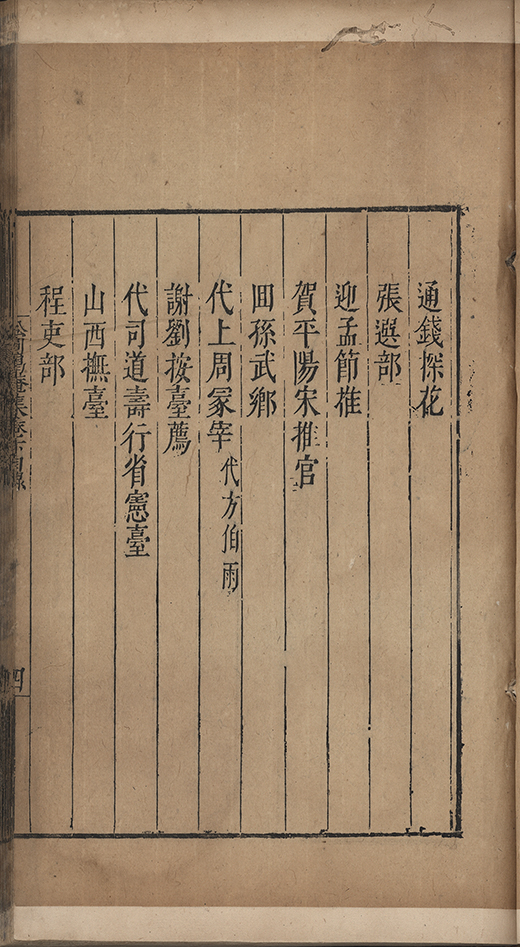 通錢探花
張選部
迎孟節推
賀平陽宋推官
田孫武鄉
代上周冢宰代方伯雨
謝劉按臺薦
代司道壽行省憲臺
山西撫臺
程吏部
四